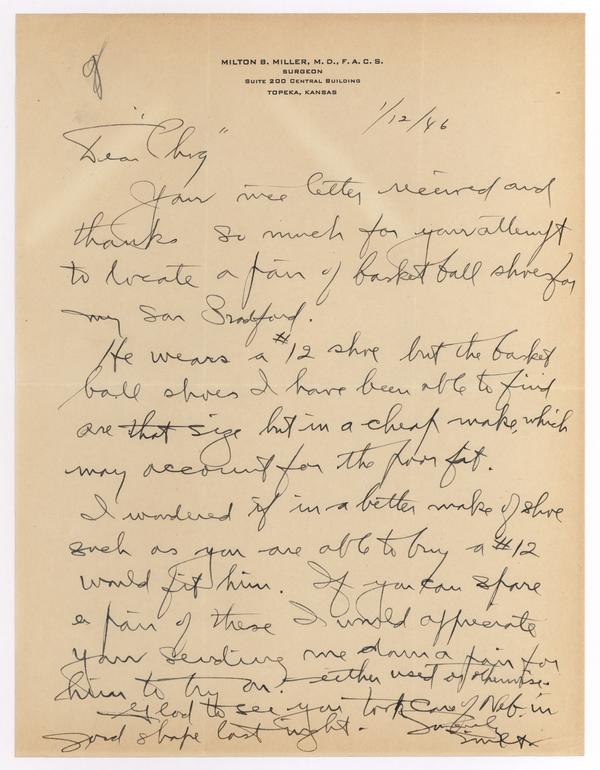 MILTON B. MILLER, M. D., F. A. C. S.
SURGEON
SUITE 200 CENTRAL BUILDING
TOPEKA, KANSAS
1/12/46
Dear "Phog"
Your nice letter received and
thanks so much for your attempt
to locate a pair of basket ball shoes for
my son Bradford.
He wears a #12 shoe but the basket
ball shoes I have been able to find
are that size but in a cheap make, which
may account for the poor fit.
I wondered if in a better make of shoe
such as you are able to buy a #12
would fit him. If you can spare
a pair of these I would appreciate
your sending me down a pair for
him to try on. either used or otherwise.
Glad to see you took care of Neb. in
good shape last night.
Milton